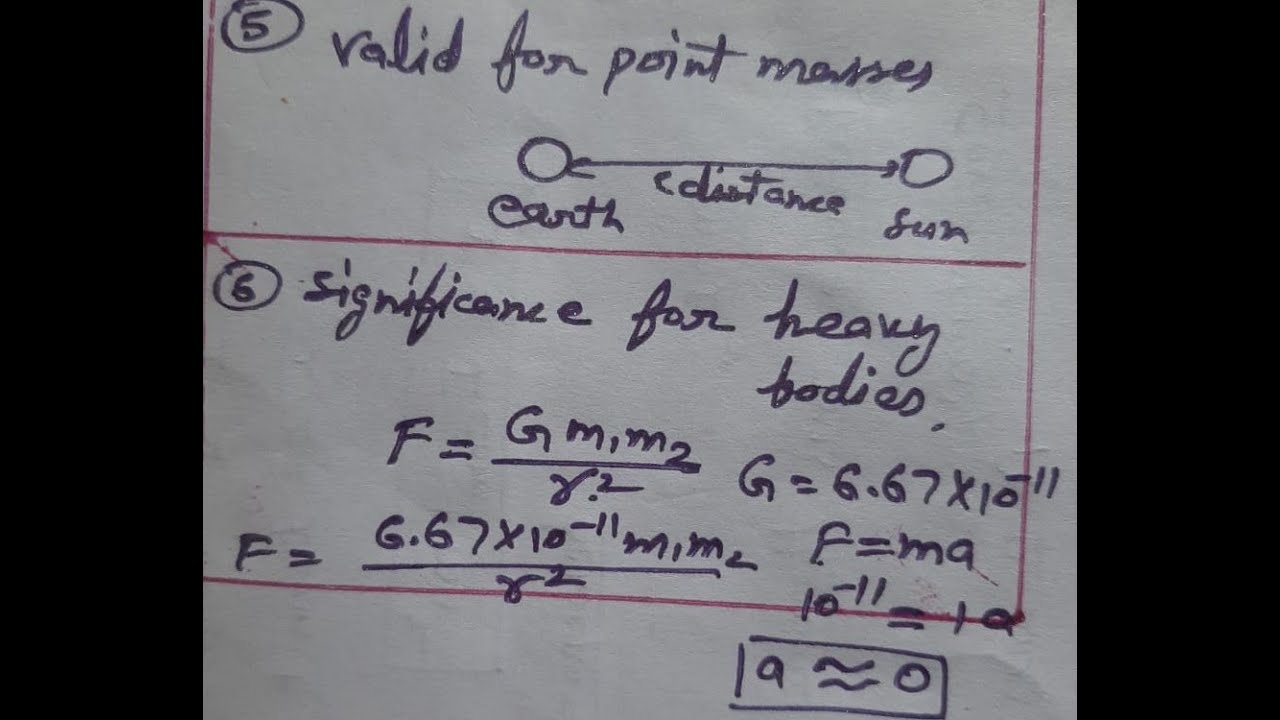 ⑤ valid for point masses
distance
earth
sun
⑥ significance for heavy
bodies.
F = G m₁m₂ / r²
G = 6.67×10⁻¹¹
F = 6.67×10⁻¹¹ m₁m₂ / r²
F = ma
10⁻¹¹ = 1a
a ≈ 0